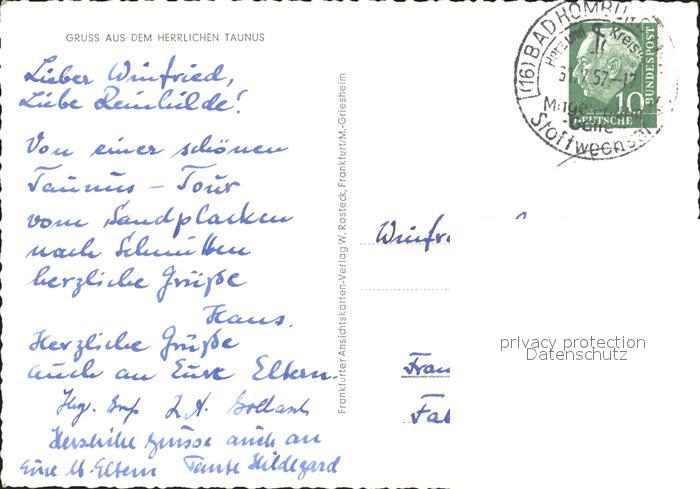 GRUSS AUS DEM HERRLICHEN TAUNUS
Lieber Winfried,
Liebe Reinhilde!
Von einer schönen
Taunus – Tour
vom Sandplacken
nach Schmitten
herzliche Grüße
Hans.
Herzliche Grüße
auch an Eure Eltern.
Hzg.
Herzliche Grüsse auch an
Eure lb. Eltern Tante Hildegard
Frankfurter Ansichtskarten-Verlag W. Rasteck, Frankfurt/M.-Griesheim
(16) BAD HOMBURG
Herz und Kreisl
57.-17
Magen
Stoffwechsel
10
DEUTSCHE
BUNDESPOST
Winfr
Fran
privacy protection
Datenschutz